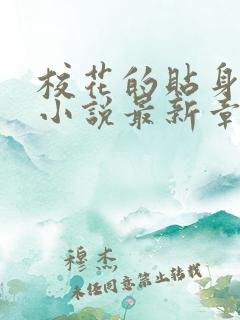 校花的贴身
小说最新章
穆杰
未经同意禁止转载